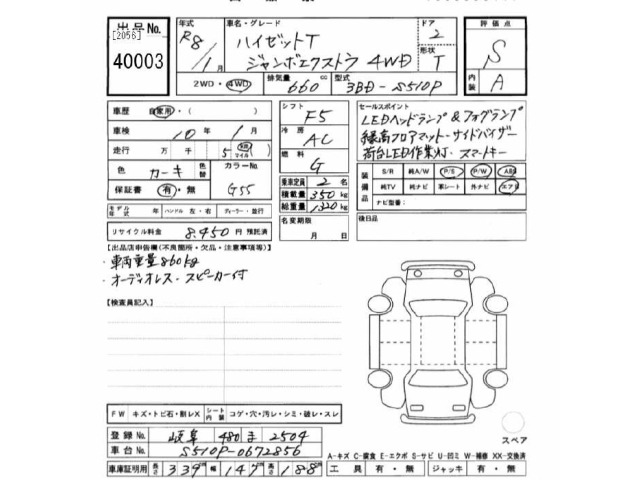 出品No. 年式 車名・グレード ドア 評価点
[2056] R8/1月 ハイゼットT 2 S
40003 ジャンボエクストラ 4WD 形状 T
2WD・4WD 排気量 660cc 型式 3BD-S510P 内装 A
車歴 自家用・( ) シフト F5 セールスポイント
車検 10年 1月 冷房 AC LEDヘッドランプ&フォグランプ
走行 万 千 5 km マイル 燃料 G 縁高フロアマット・サイドバイザー
色 カーキ 色替 カラーNo. G55 荷台LED作業灯・スマートキー
保証書 有・無 乗車定員 2名 装備品 S/R 純A/W P/S P/W ABS
積載量 350kg 純TV 純ナビ 革シート 外ナビ エアB
総重量 1320kg ナビ型番:
モデル年式 年 ハンドル 左・右 ディーラー・並行 名変期限 月 日 検日品
リサイクル料金 8,450円 預託済
【出品店申告欄(不良箇所・欠品・注意事項等)】
・車両重量860kg
・オーディオレス・スピーカー付
【検査員記入】
FW キズ・トビ石・割レX シート内装 コゲ・穴・汚レ・シミ・破レ・スレ
登録No. 岐阜 480 ま 2504 スペア
車台No. S510P-0672856 A-キズ C-腐食 E-エクボ S-サビ U-凹ミ W-補修 XX-交換済
車庫証明用 長さ 339cm 幅 147cm 高さ 188cm 工具 有・無 ジャッキ 有・無